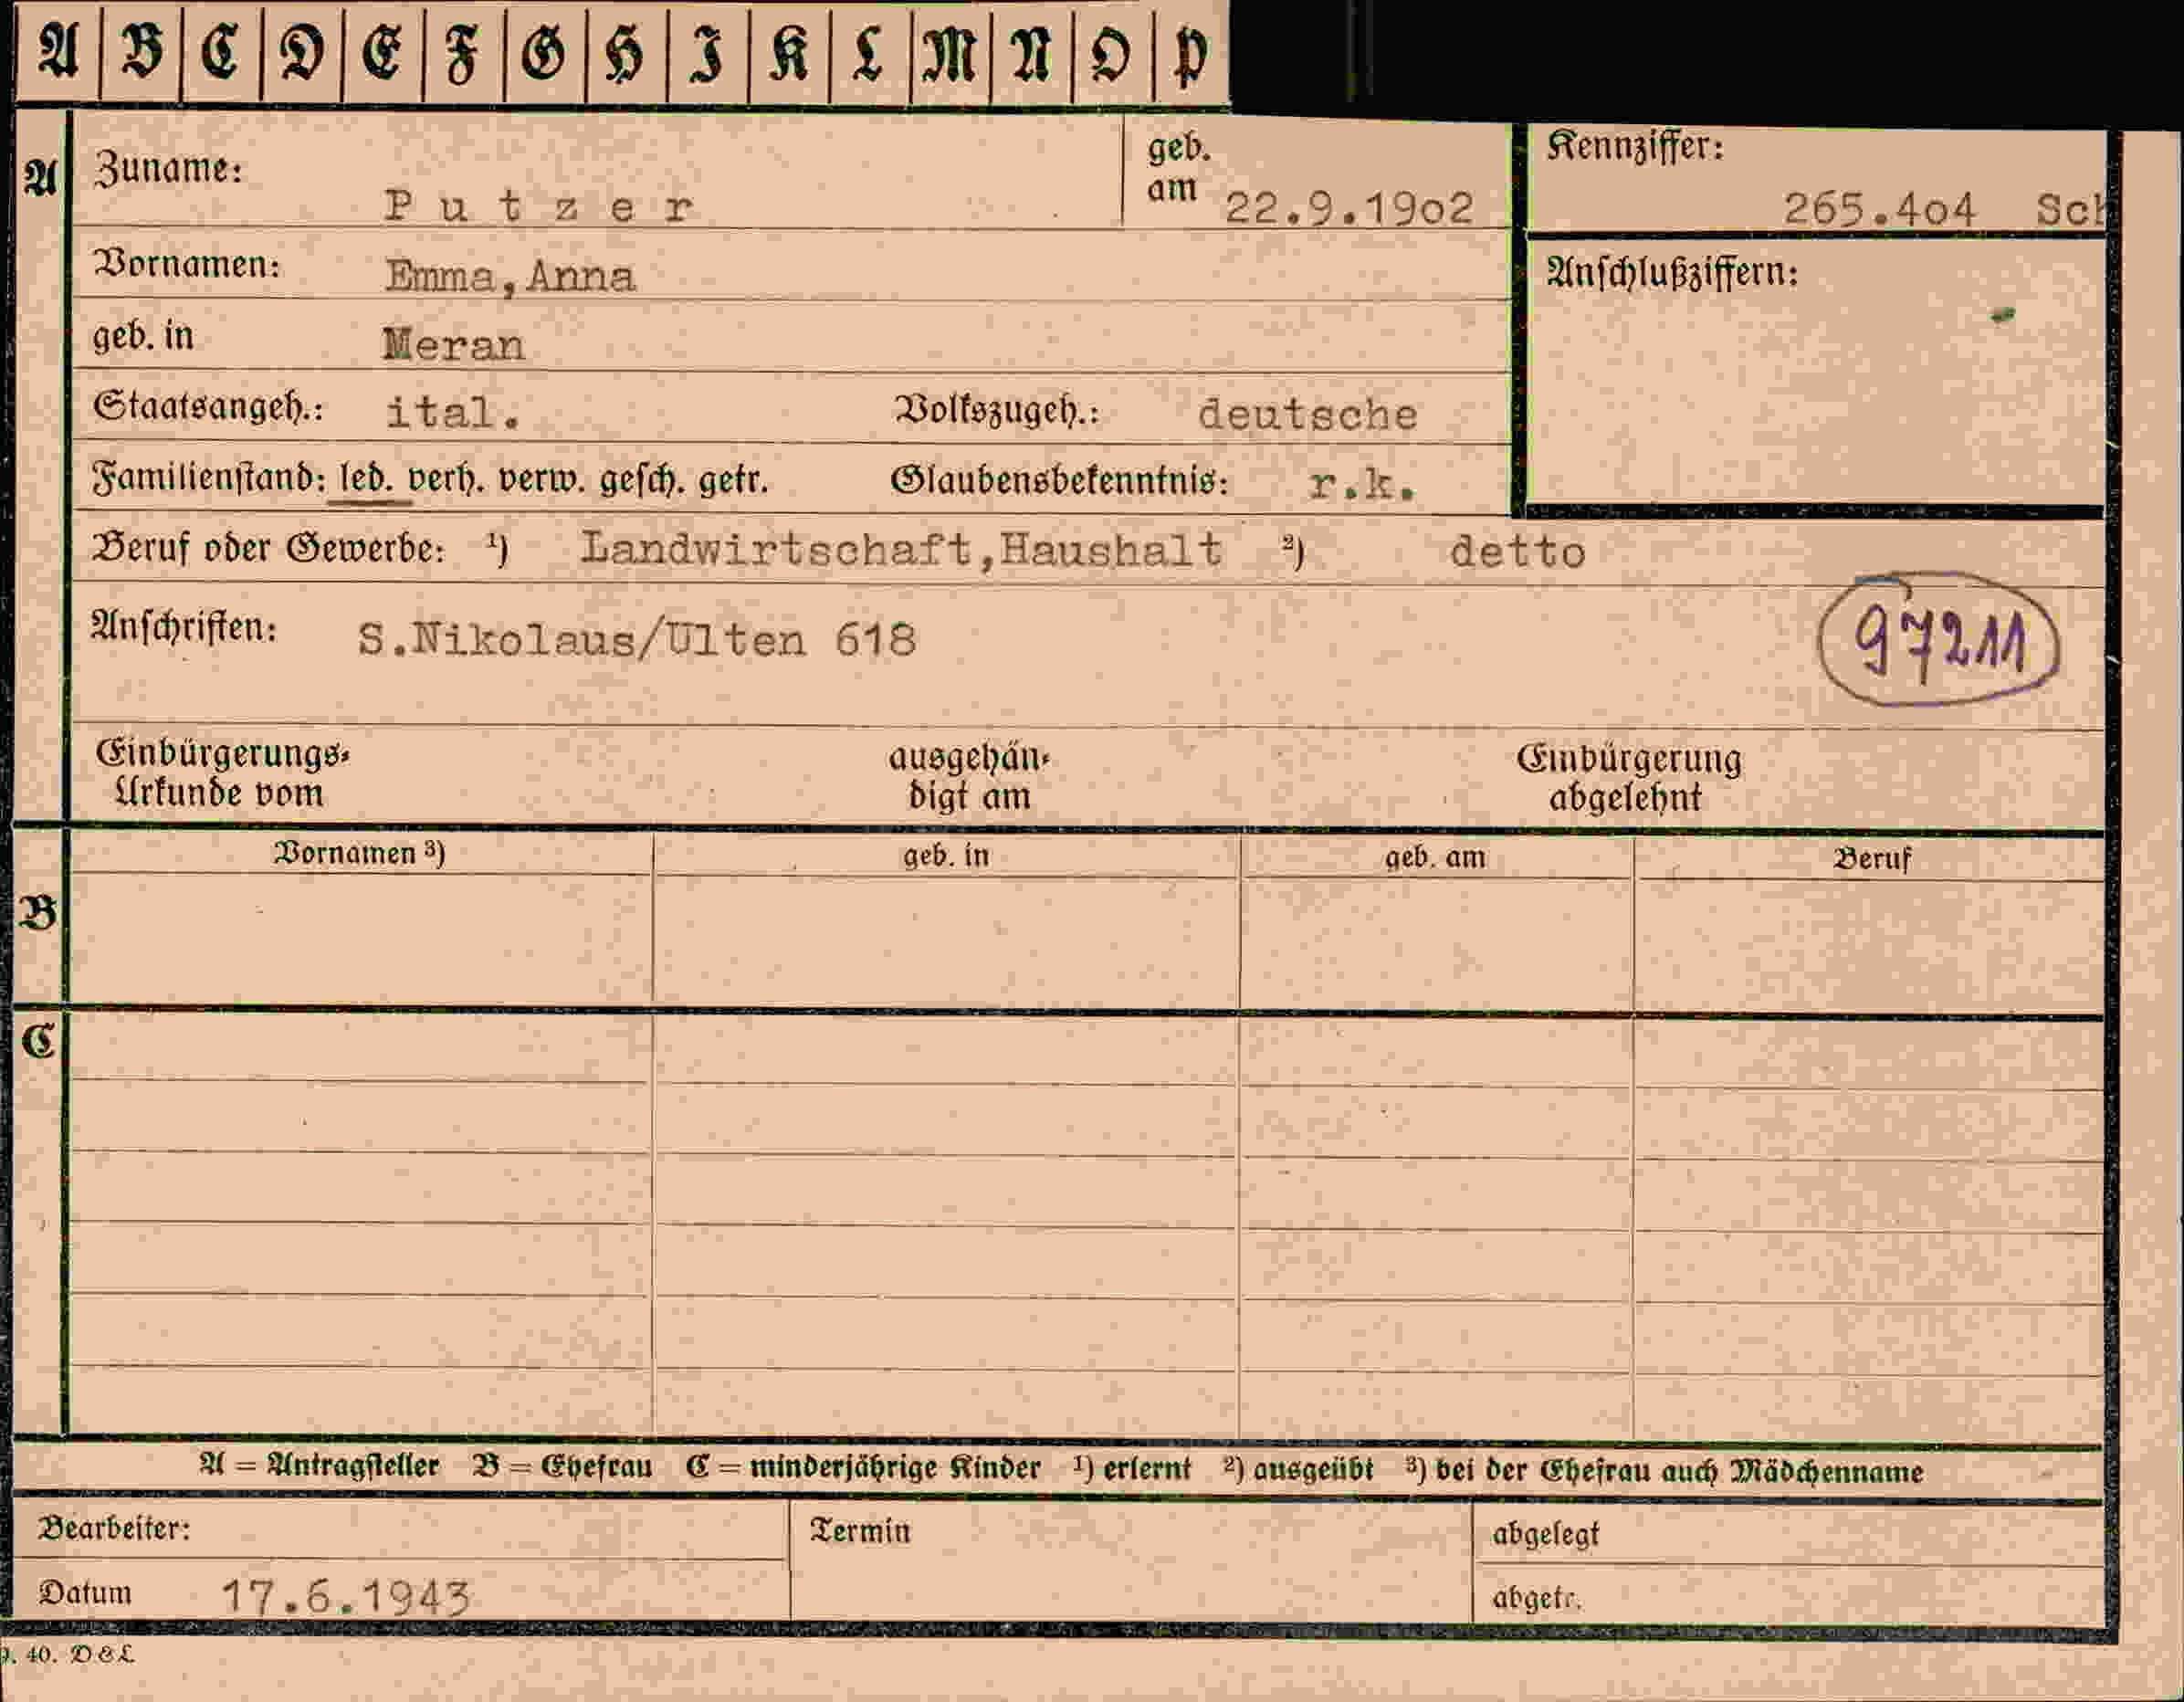 A B C D E F G H I K L M N O P
A Zuname: Putzer geb. am 22.9.19o2 Kennziffer: 265.4o4 Sch
Vornamen: Emma,Anna Anschlußziffern:
geb. in Meran
Staatsangeh.: ital. Volkszugeh.: deutsche
Familienstand: led. verh. verw. gesch. getr. Glaubensbekenntnis: r.k.
Beruf oder Gewerbe: ¹) Landwirtschaft,Haushalt ²) detto
Anschriften: S.Nikolaus/Ulten 618 97211
Einbürgerungs- ausgehän- Einbürgerung
Urkunde vom digt am abgelehnt
Vornamen ³) geb. in geb. am Beruf
B
C
A = Antragsteller B = Ehefrau C = minderjährige Kinder ¹) erlernt ²) ausgeübt ³) bei der Ehefrau auch Mädchenname
Bearbeiter: Termin abgelegt
Datum 17.6.1943 abgetr.
40. D & L